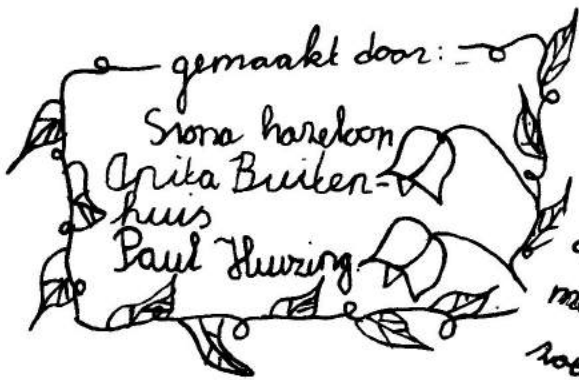 gemaakt door:
Siona hazeloon
Anita Buiten-
huis
Paul Huizing